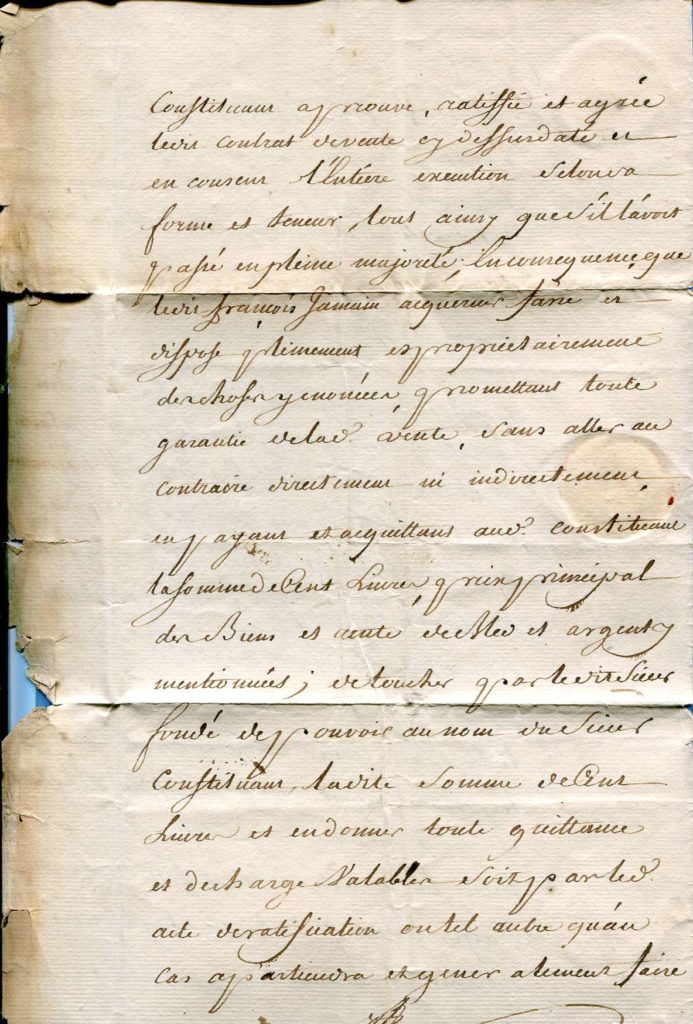 Constituant aprouve, ratiffie et agrée
ledit contrat de vente cy dessus daté et
en consent l'Entiére execution selon sa
forme et teneur, tout ainsy que s'il l'avoit
passé en pleine majorité; En consequence que
ledit françois Jamain acquereur fasse et
dispose pleinement et proprietairement
des choses y enoncées, promettant toute
garantie de lad.e vente, sans aller au
contraire directement ni indirectement
en payant et acquittant aud.t constituant
la somme de Cent Livres, prix principal
des Biens et rente de bled et argent y
mentionnées; de toucher par le dit sieur
fondé de pouvoir au nom du sieur
Constituant, ladite somme de Cent
Livres et en donner toute quittance
et decharge Valables soit par led.t
acte de ratification ou tel autre qu'au
cas apartiendra et generalement faire